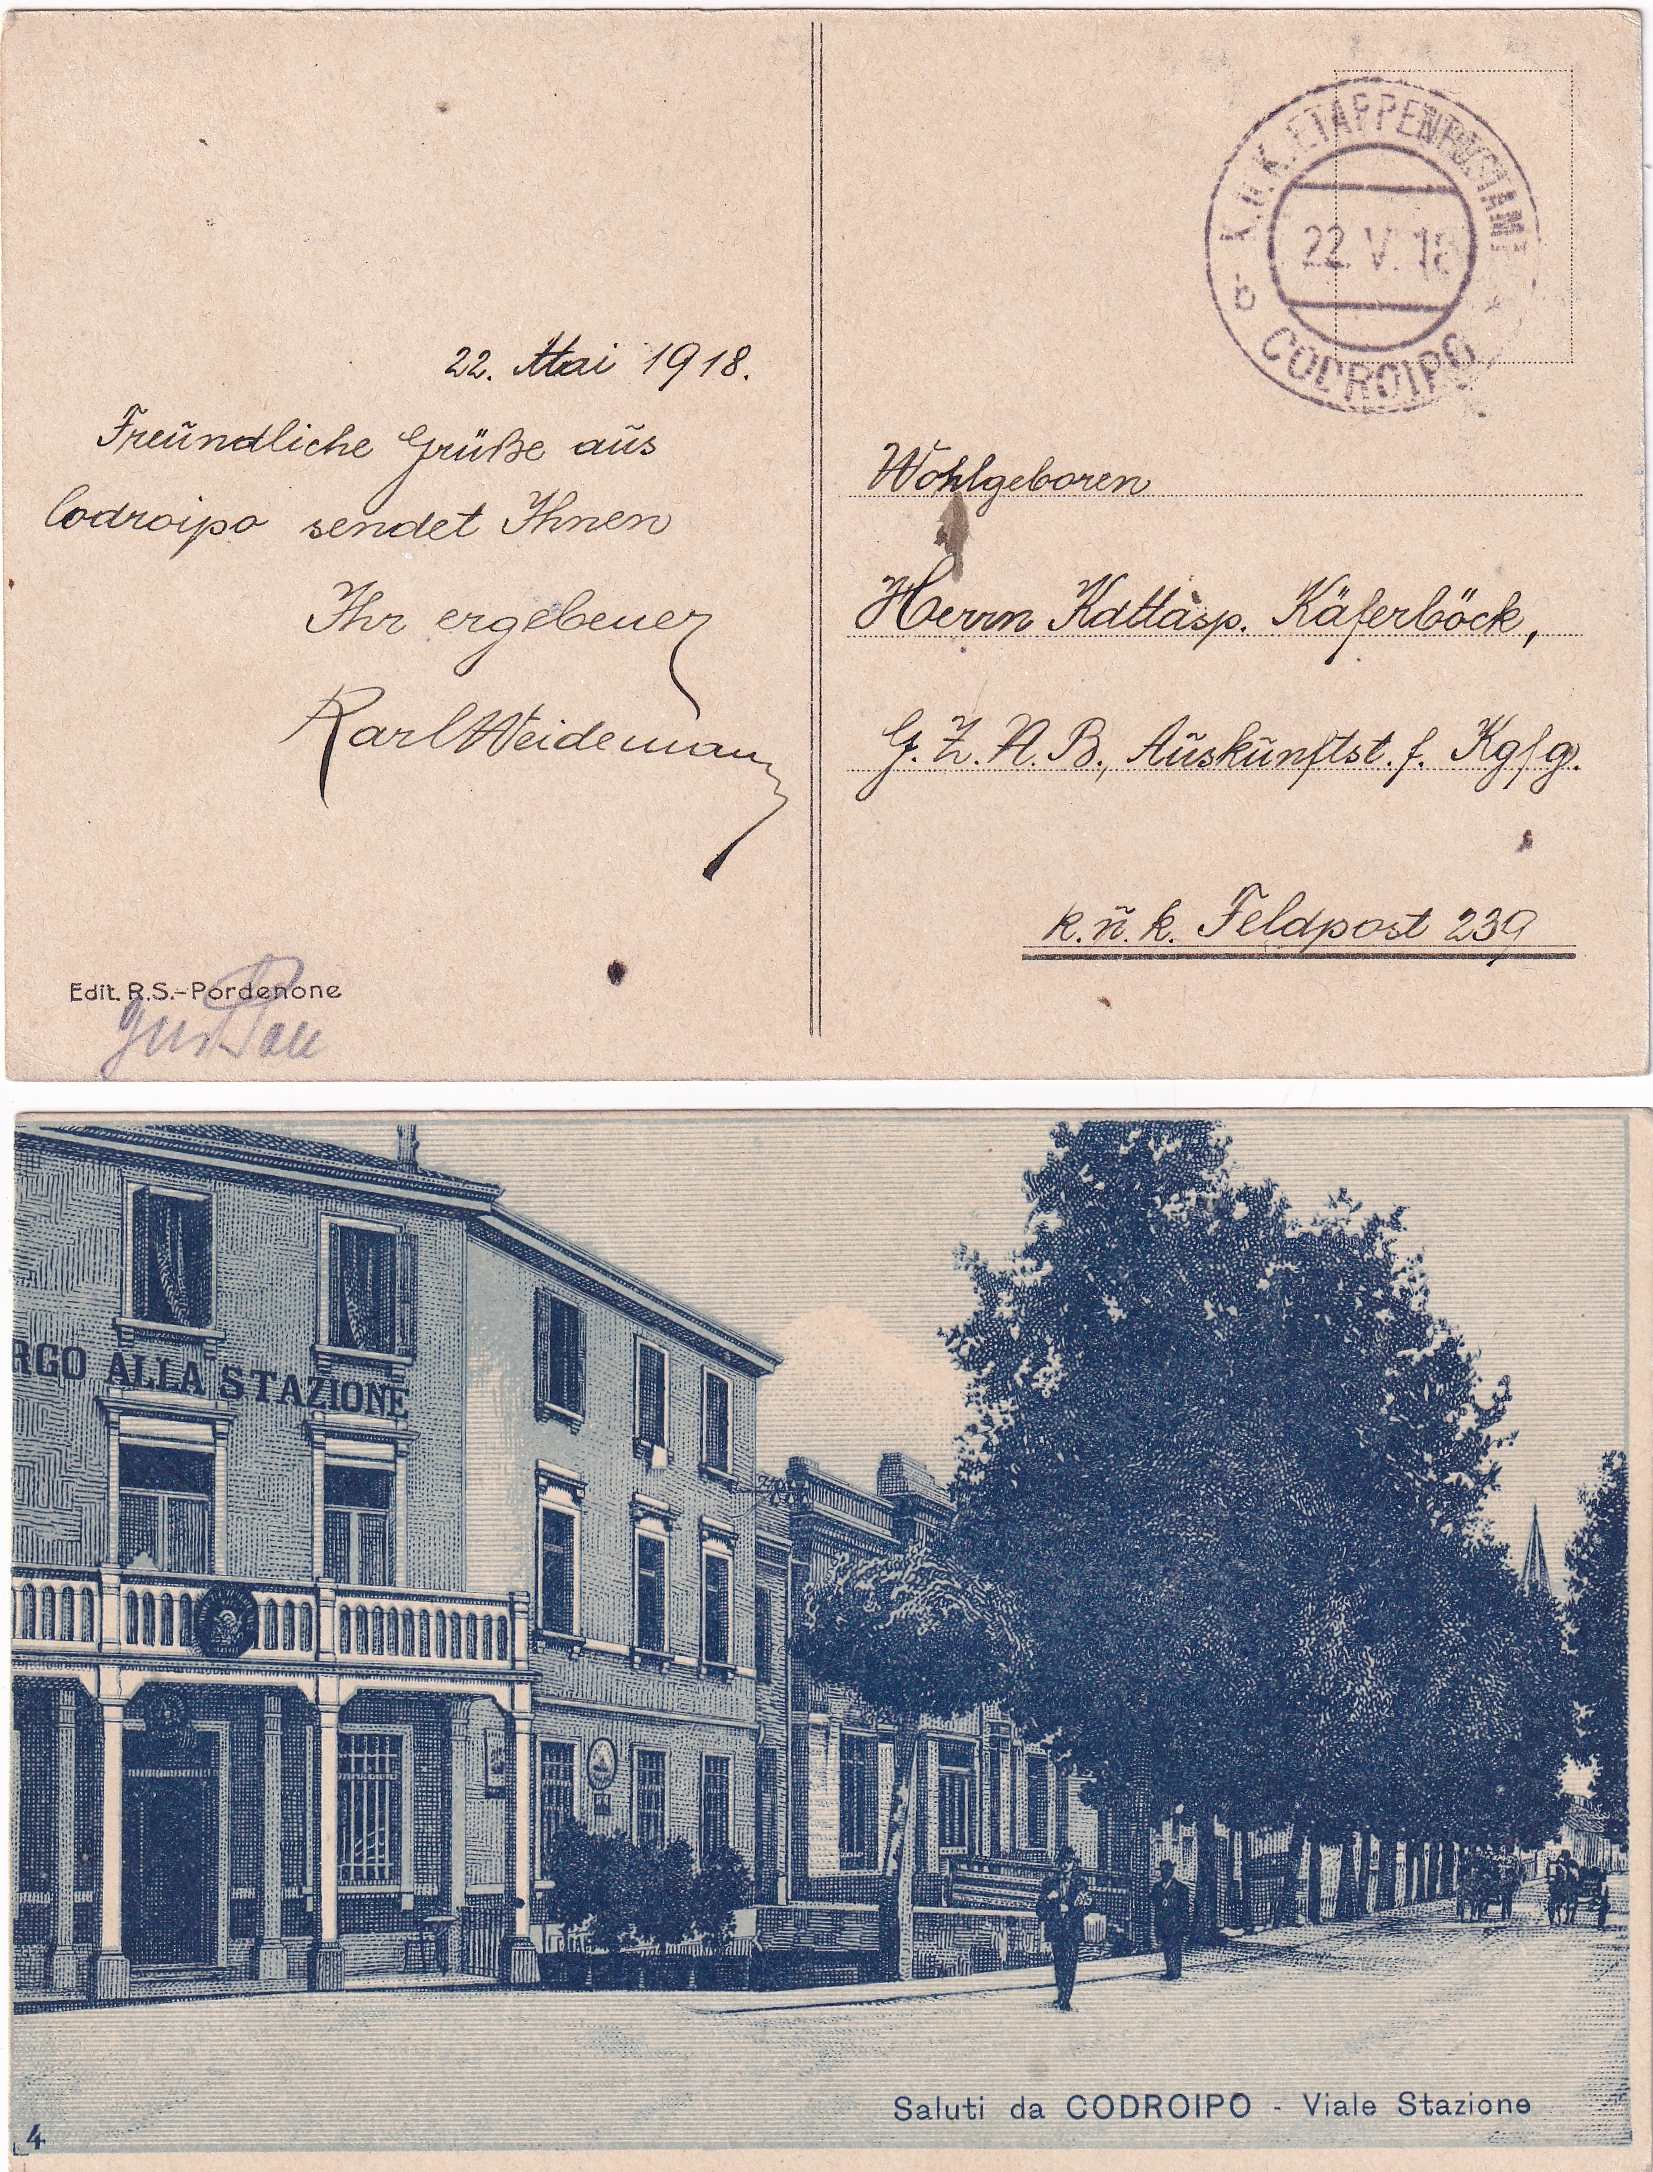 K.U.K. ETAPPENPOSTAMT
22. V. 18
b
*
CODROIPO
22. Mai 1918.
Freündliche Grüße aüs
Codroipo sendet Ihnen
Ihr ergebener
Karl Weidemann
Edit. R.S.-Pordenone
Wohlgeboren
Herrn Kdttasp. Käferböck,
G. Z. N. B., Aüskünftst. f. Kgfg.
k. ü. k. Feldpost 239
RGO ALLA STAZIONE
Saluti da CODROIPO - Viale Stazione
4